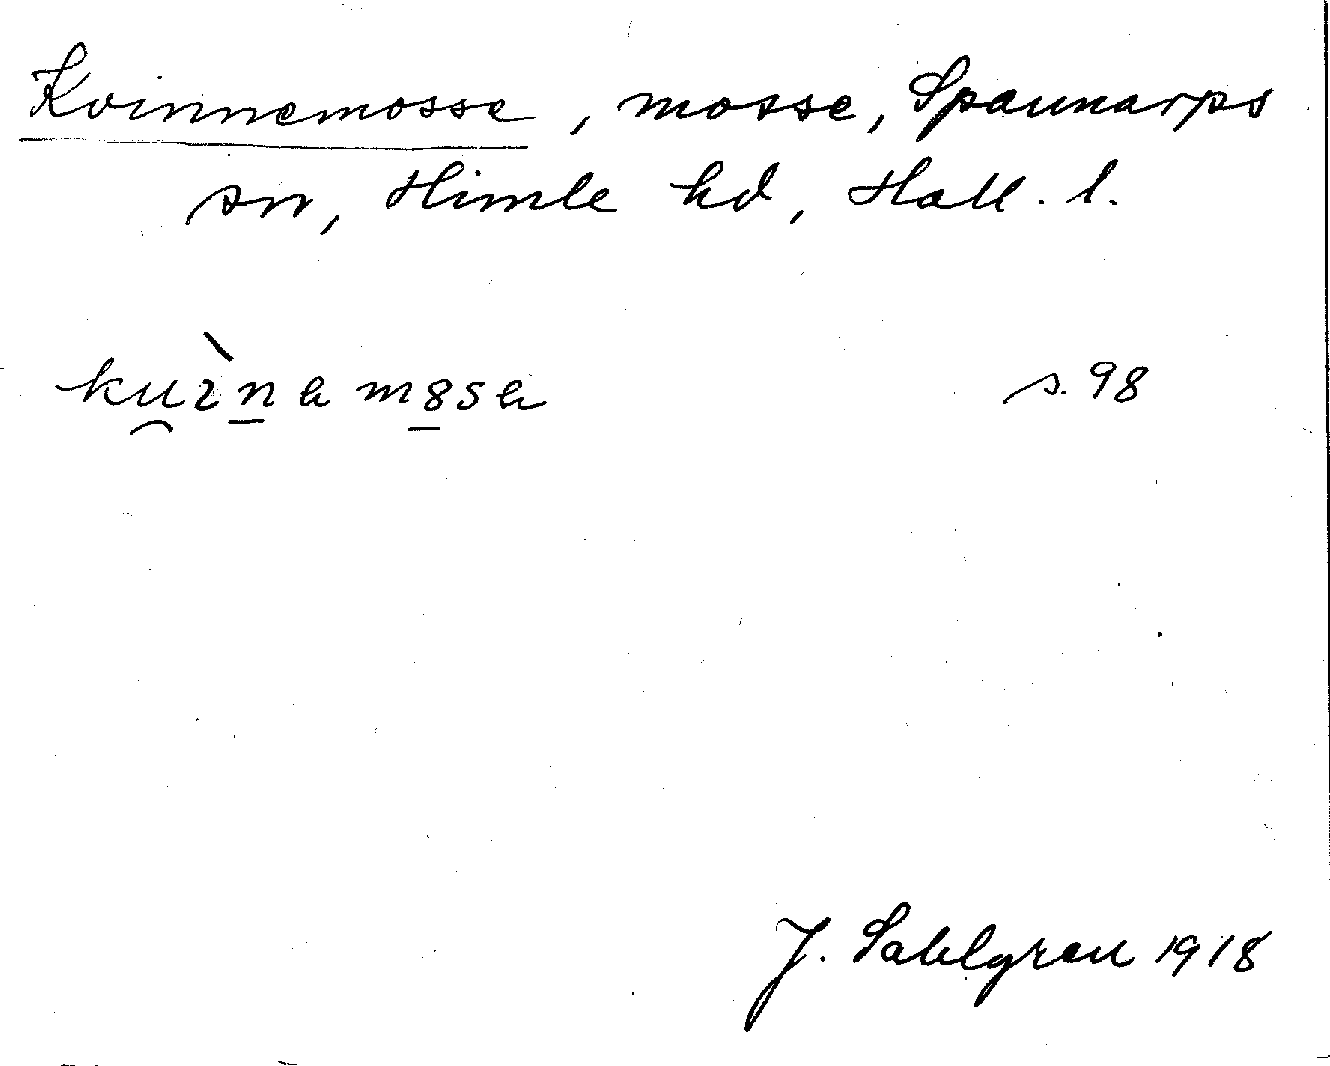 Kvinnemosse, mosse, Spannarps
sn, Himle hd, Hall. l.
ku̯ɪ̀n̲a mo̲sa s. 98
J. Sahlgren 1918